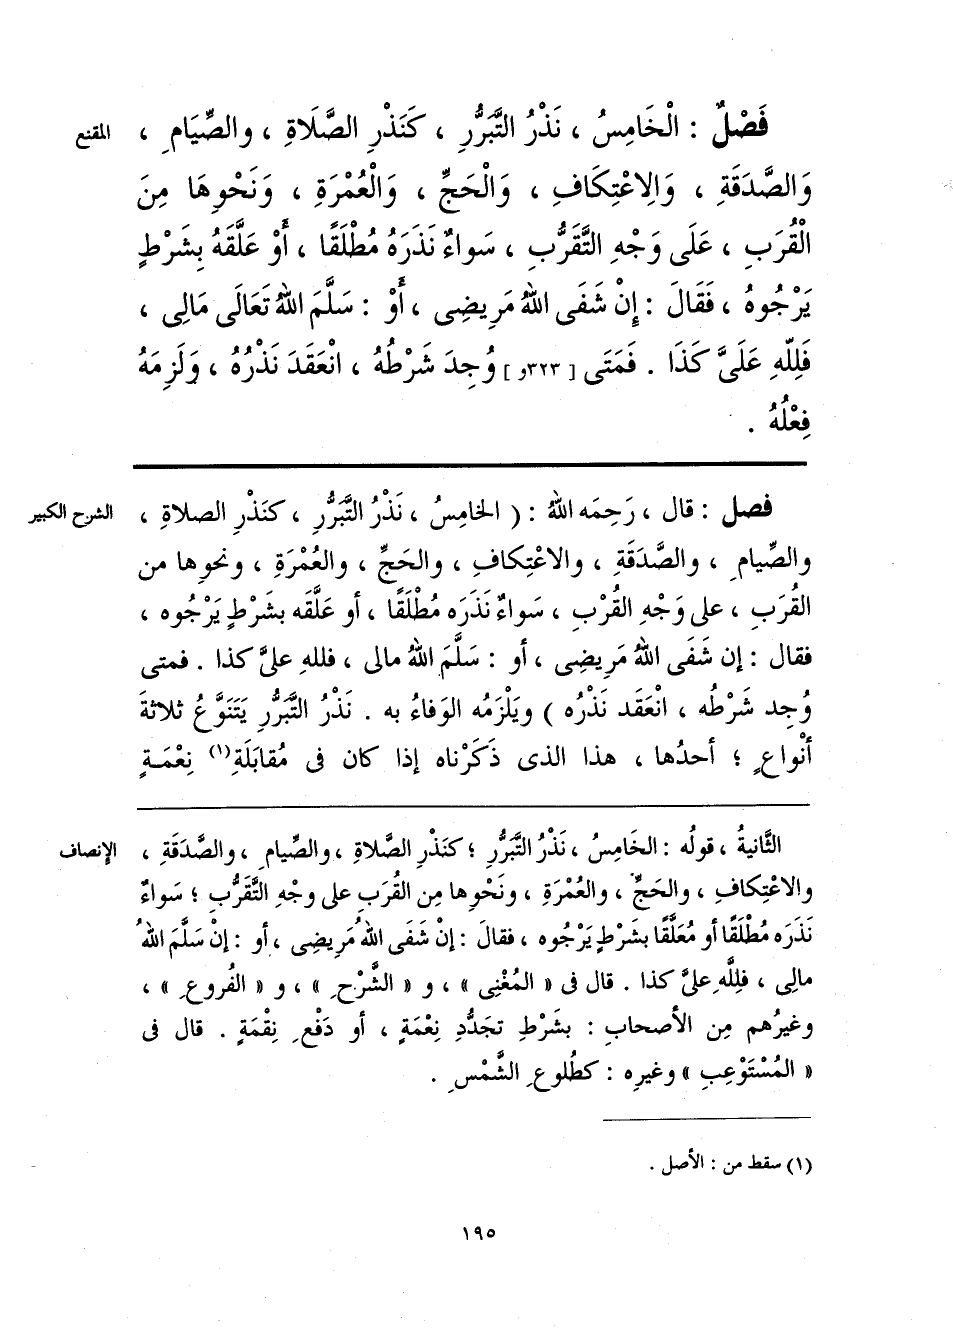 المقنع
فَصْلٌ : الْخَامِسُ ، نَذْرُ التَّبَرُّرِ ، كَنَذْرِ الصَّلَاةِ ، والصِّيَامِ ،
وَالصَّدَقَةِ ، وَالِاعْتِكَافِ ، وَالْحَجِّ ، وَالْعُمْرَةِ ، وَنَحْوِهَا مِنَ
الْقُرَبِ ، عَلَى وَجْهِ التَّقَرُّبِ ، سَواءٌ نَذَرَهُ مُطْلَقًا ، أَوْ عَلَّقَهُ بِشَرْطٍ
يَرْجُوهُ ، فَقَالَ : إِنْ شَفَى اللهُ مَرِيضِى ، أَوْ : سَلَّمَ اللهُ تَعَالَى مَالِى ،
فَلِلّهِ عَلَىَّ كَذَا . فَمَتَى [ ٣٢٣و ] وُجِدَ شَرْطُهُ ، انْعَقَدَ نَذْرُهُ ، وَلَزِمَهُ
فِعْلُهُ .
الشرح الكبير
فصل : قال ، رَحِمَه اللهُ : ( الخامِسُ ، نَذْرُ التَّبَرُّرِ ، كنَذْرِ الصلاةِ ،
والصِّيامِ ، والصَّدَقَةِ ، والاعْتِكافِ ، والحَجِّ ، والعُمْرَةِ ، ونحوِها من
القُرَبِ ، على وَجْهِ القُرْبِ ، سَواءٌ نَذَرَه مُطْلَقًا ، أو عَلَّقَه بشَرْطٍ يَرْجُوه ،
فقال : إن شَفَى اللهُ مَرِيضِى ، أو : سَلَّمَ اللهُ مالى ، فللهِ علىَّ كذا . فمتى
وُجِد شَرْطُه ، انْعَقَد نَذْرُه ) ويَلْزَمُه الوَفاءُ به . نَذْرُ التَّبَرُّرِ يَتَنَوَّعُ ثلاثةَ
أنْواعٍ ؛ أحدُها ، هذا الذى ذَكَرْناه إذا كان فى مُقابَلَةِ(١) نِعْمَةٍ
الإنصاف
الثَّانيةُ ، قولُه : الخَامِسُ ، نَذْرُ التَّبَرُّرِ ؛ كنَذْرِ الصَّلاةِ ، والصِّيامِ ، والصَّدَقَةِ ،
والاعْتِكافِ ، والحَجِّ ، والعُمْرَةِ ، ونَحْوِها مِن القُرَبِ على وجْهِ التَّقَرُّبِ ؛ سَواءٌ
نَذَرَه مُطْلَقًا أو مُعَلَّقًا بشَرْطٍ يَرْجُوه ، فقالَ : إنْ شَفَى اللهُ مَرِيضِى ، أو : إنْ سَلَّمَ اللهُ
مالِى ، فلِلَّهِ علىَّ كذا . قال فى « المُغْنِى » ، و « الشَّرْحِ » ، و « الفُروعِ » ،
وغيرُهم مِن الأصحابِ : بشَرْطِ تجَدُّدِ نِعْمَةٍ ، أو دَفْعِ نِقْمَةٍ . قال فى
« المُسْتَوْعِبِ » وغيرِه : كطُلوعِ الشَّمْسِ .
(١) سقط من : الأصل .
١٩٥